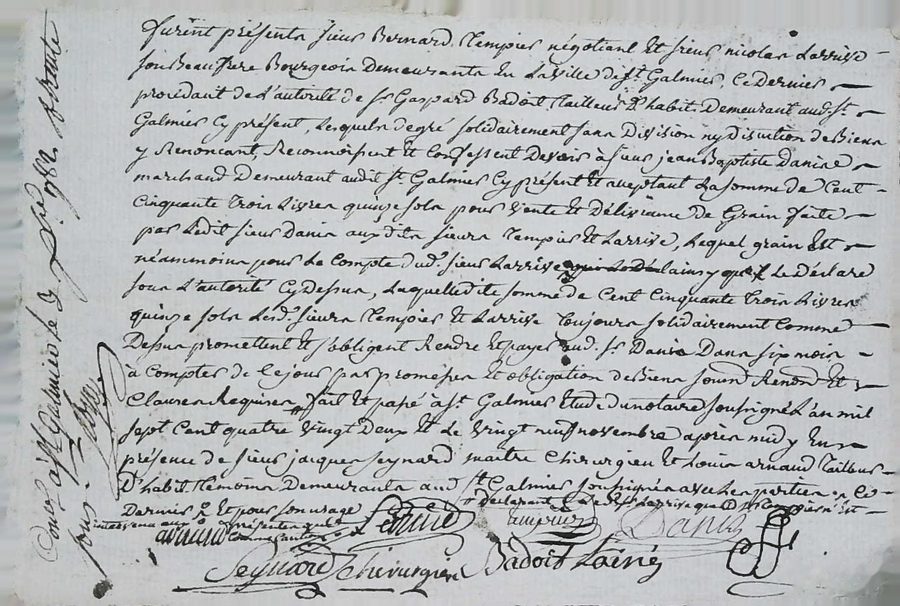 furent présents sieur Bernard Tempier négotiant et sieur nicolas Larrive
son Beaufrere Bourgeois Demeurants en la ville de st. Galmier, ce Dernier
procédant de L'autorité de sr Gaspard Badoit Tailleur D'habit Demeurant aud. st.
Galmier cy présent, Lesquels de gré solidairement sans Division ny discution de Biens
y Renoncant, Reconnoissent et confessent Devoir à sieur jean Baptiste Danis
marchand Demeurant audit st. Galmier cy présent et acceptant La somme de Cent
Cinquante trois Livres quinze sols pour vente et Délivrance de Grain faite
par Ledit sieur Danis aux dits sieurs Tempier et Larrive, Lequel grain Est
néammoins pour Le compte dud. sieur Larrive ainsy que Le déclare
sous L'autorité cy Dessus, Laquelle dite somme de Cent Cinquante trois Livres
quinze sols Lesd. sieurs Tempier et Larrive toujours solidairement comme
Dessus promettent et s'obligent Rendre et payer aud. sr. Danis Dans six mois
à compter de ce jour par promesses et obligation de Biens soum Renon et
Clauses Requises fait et passé à st. Galmier Etude du notaire soussigné L'an mil
sept Cent quatre vingt Deux et Le vingt neuf novembre après midy En
présence de sieur jacques seynard maitre chirurgien et Louis arnaud tailleur
D'habit témoins Demeurants aud. st. Galmier soussignés avec Les parties
Dernier et pour son usage
arnaud Danis
Seynard chirurgien Badoit Lainé
à st Galmier le 1782